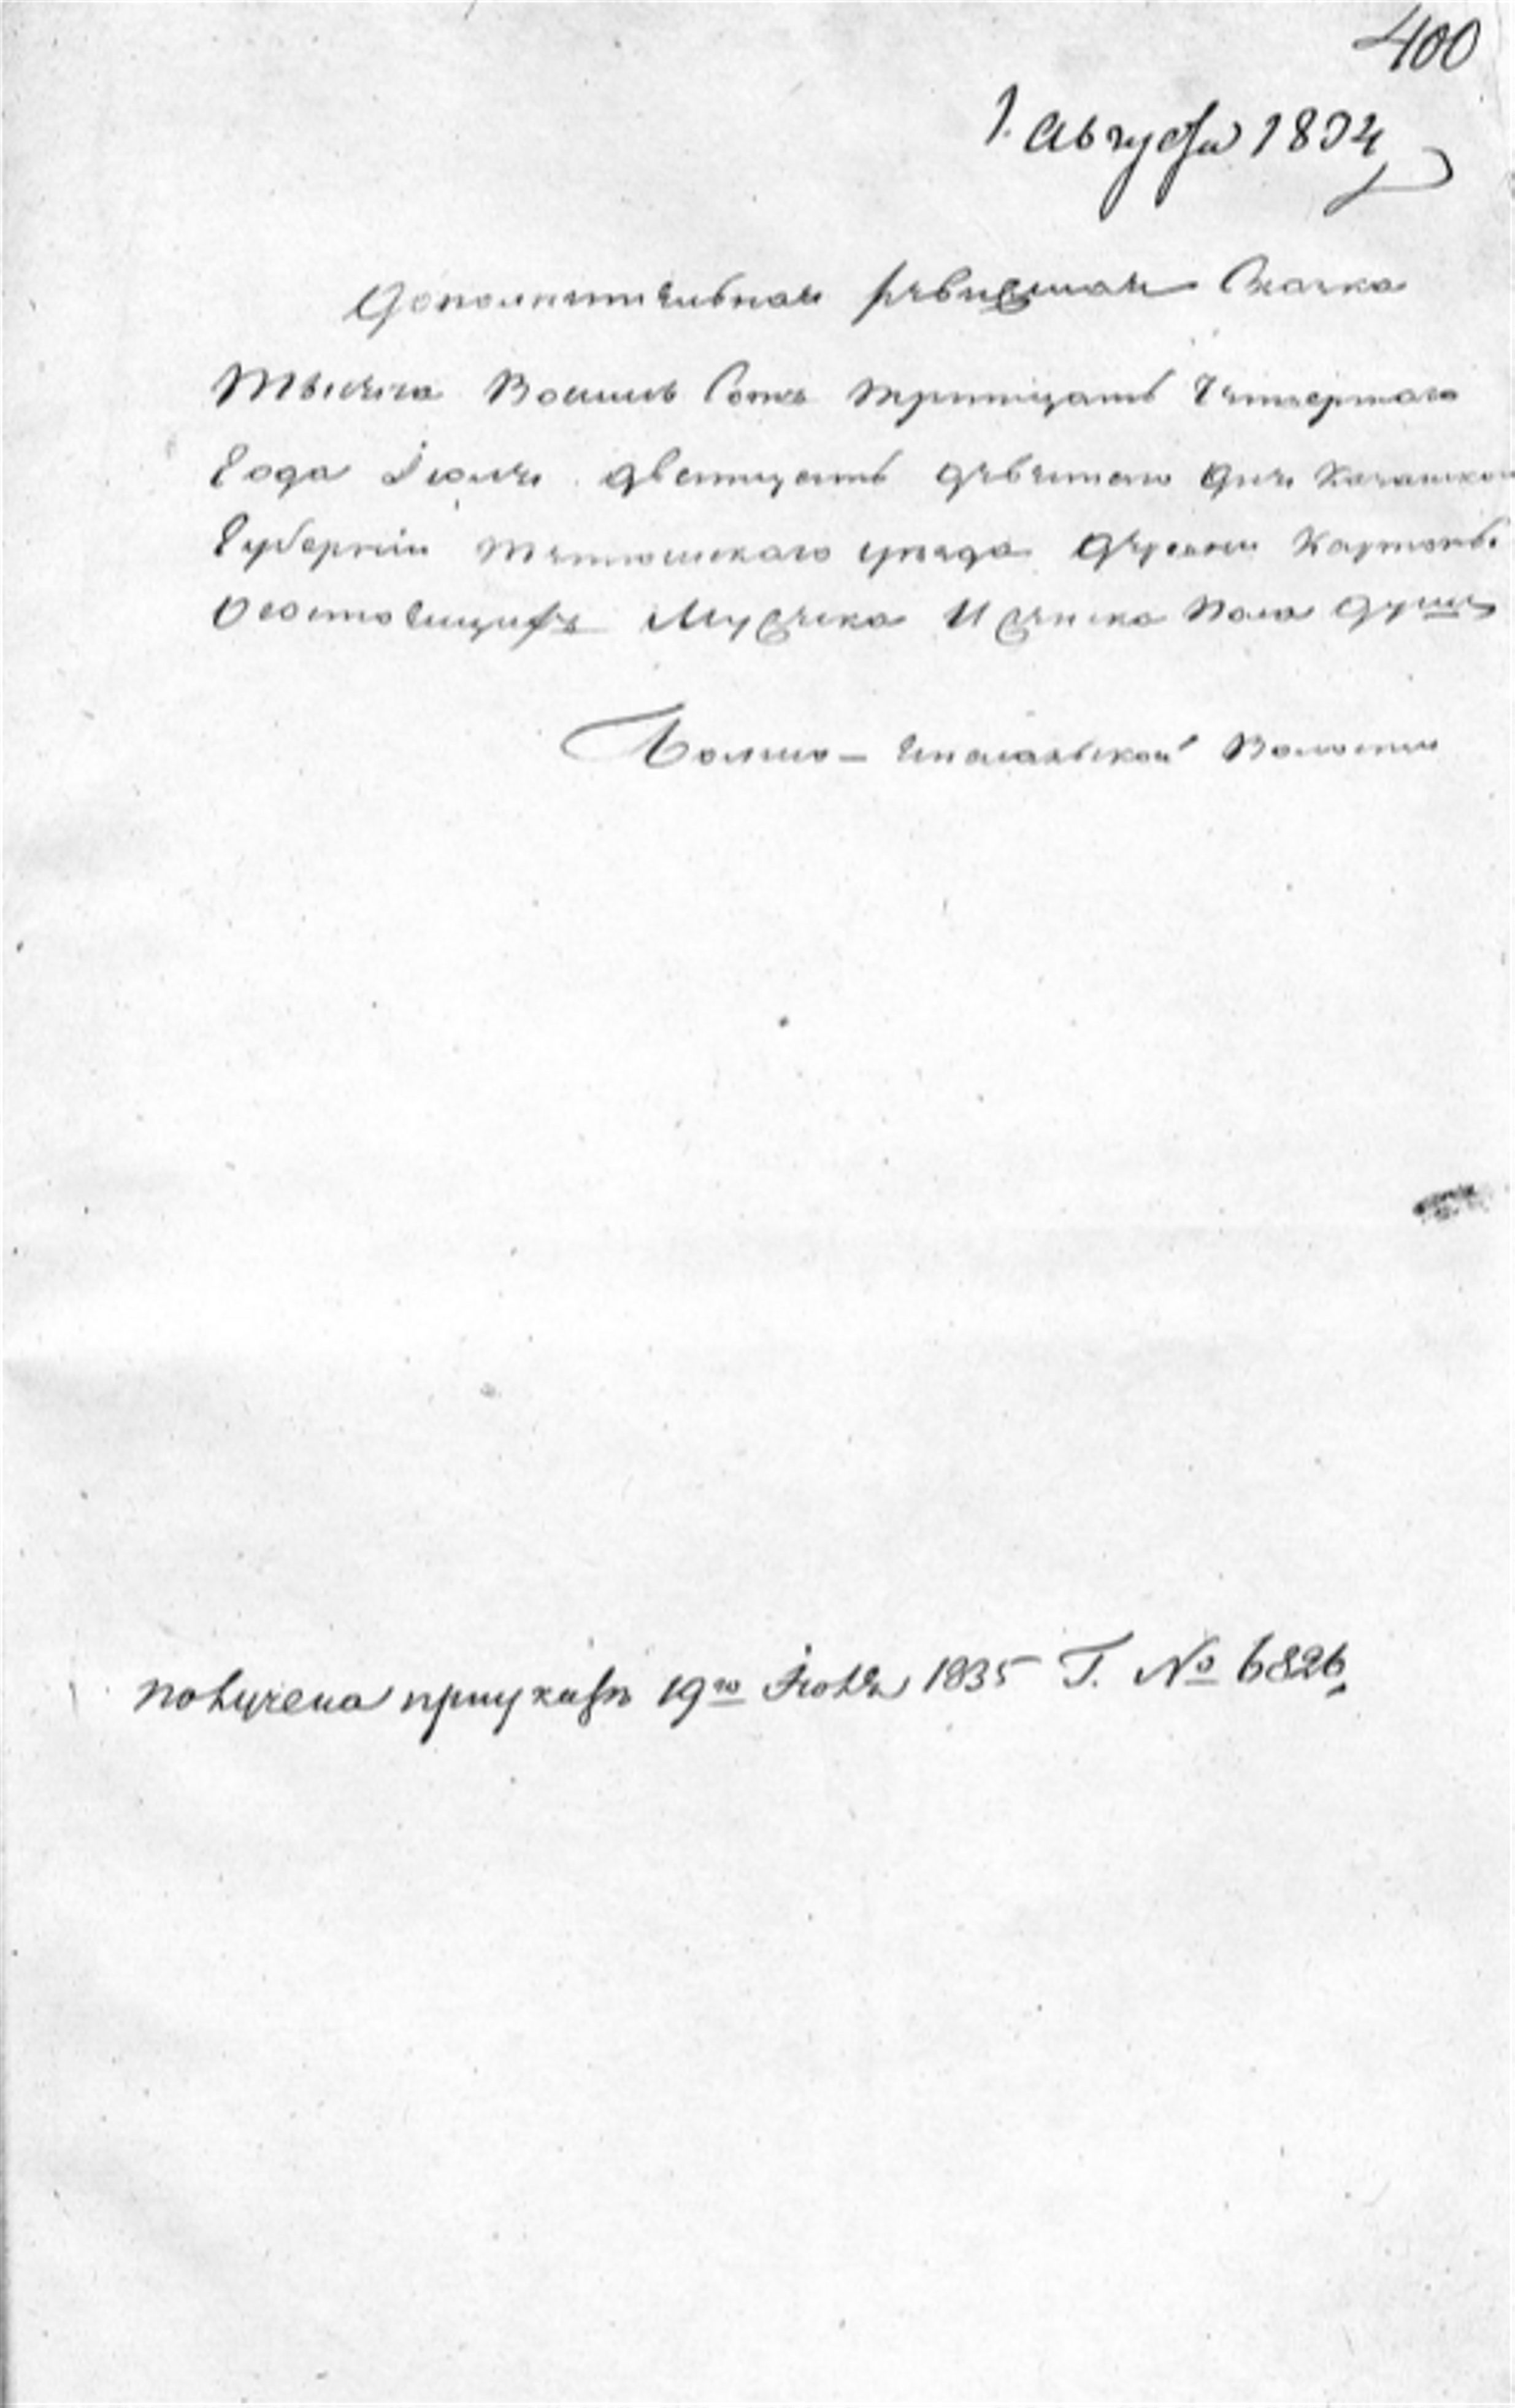 400
1. Августа 1834
Дополнительная ревизская Скаска
Тысяча Восемь Сотъ тритцать Четвертаго
Года Іюля дватцать девятаго Дня Казанской
Губерніи Тетюшскаго уезда Деревни
О состоящихъ Мужеска И женска Пола Душъ
Волости
получена приуказѣ 19го Іюля 1835 Г. № 6826